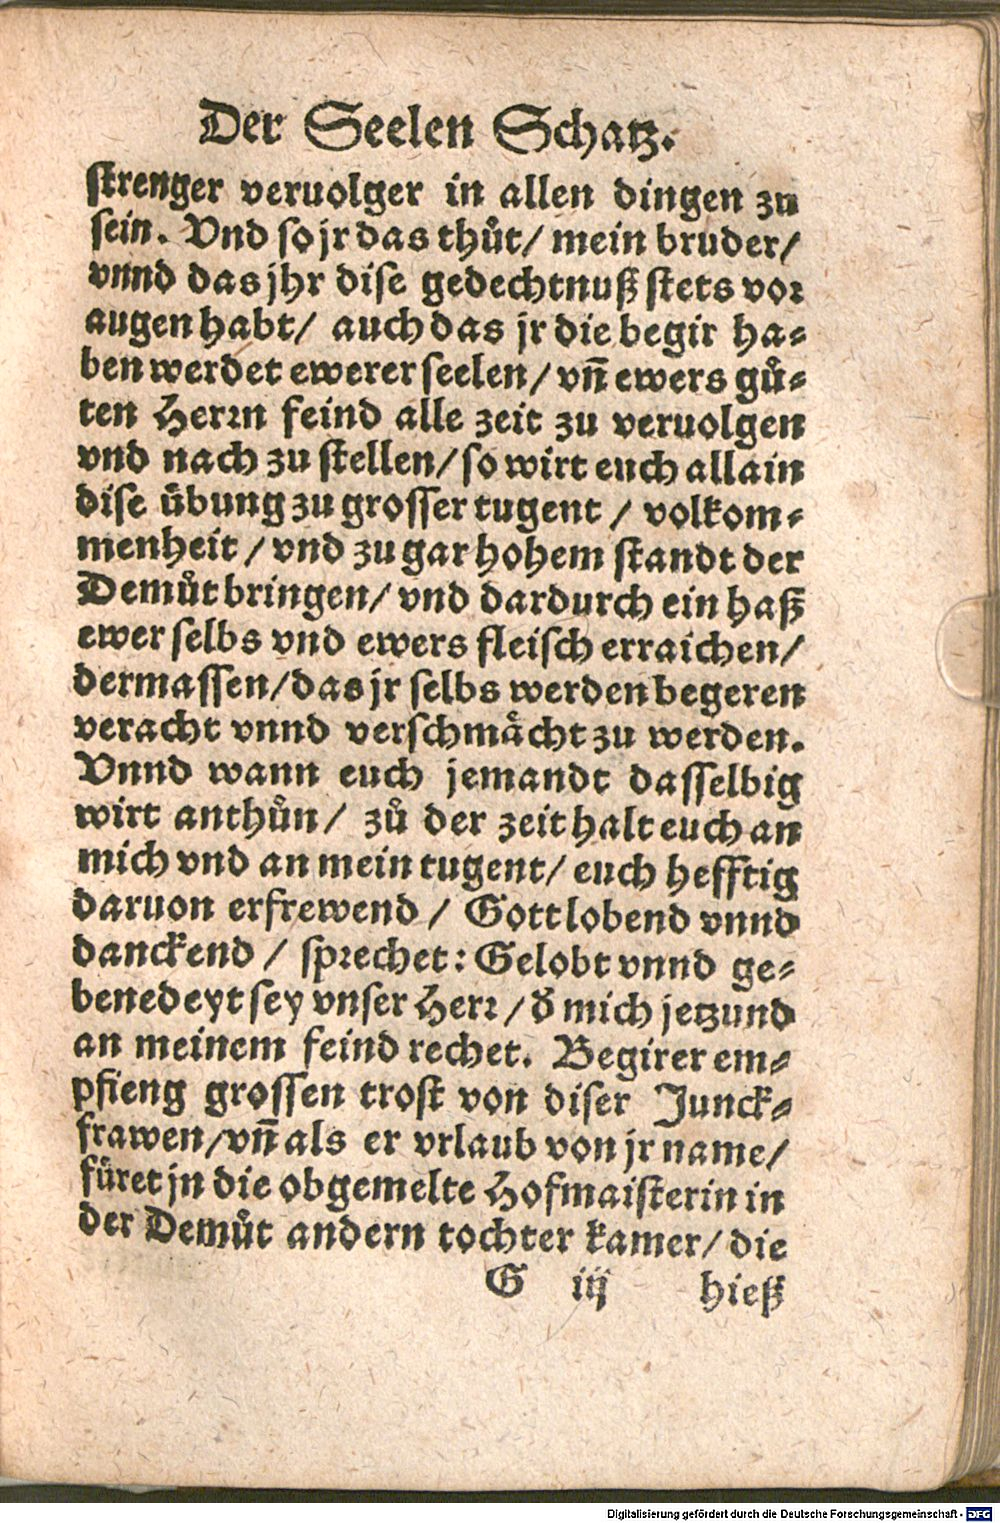 Der Seelen Schatz.
strenger veruolger in allen dingen zu
sein. Vnd so jr das thůt/ mein bruder/
vnnd das jhr dise gedechtnuß stets vor
augen habt/ auch das jr die begir ha-
ben werdet ewerer seelen/ vñ ewers gů-
ten Herrn feind alle zeit zu veruolgen
vnd nach zu stellen/ so wirt euch allain
dise übung zu grosser tugent / volkom-
menheit / vnd zu gar hohem standt der
Demůt bringen/ vnd dardurch ein haß
ewer selbs vnd ewers fleisch erraichen/
dermassen/ das jr selbs werden begeren
veracht vnnd verschmächt zu werden.
Vnnd wann euch jemandt dasselbig
wirt anthůn/ zů der zeit halt euch an
mich vnd an mein tugent/ euch hefftig
daruon erfrewend / Gott lobend vnnd
danckend / sprechet: Gelobt vnnd ge-
benedeyt sey vnser Herr / d̕ mich jetzund
an meinem feind rechet. Begirer em-
pfieng grossen trost von diser Junck-
frawen/ vñ als er vrlaub von jr name/
füret jn die obgemelte Hofmaisterin in
der Demůt andern tochter kamer/ die
G iij hieß
Digitalisierung gefördert durch die Deutsche Forschungsgemeinschaft - DFG